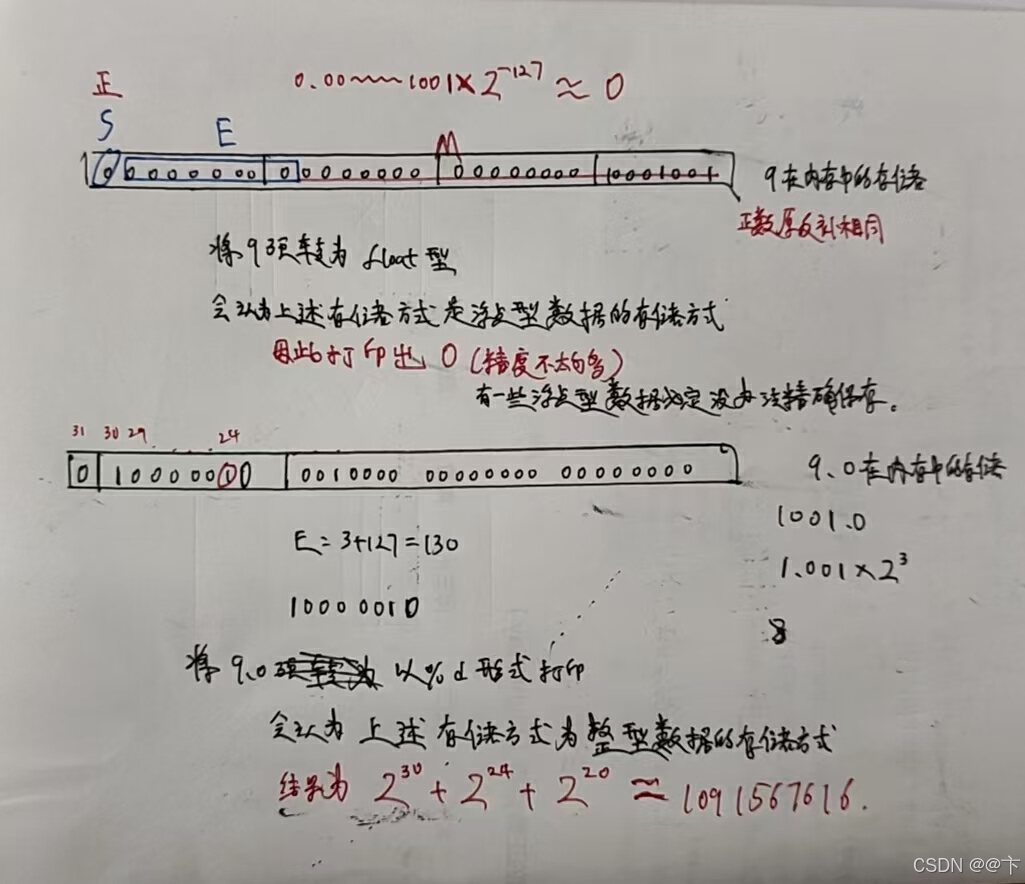 正 0.00~~~1001×2^-127 ≈ 0
S E M
0 0 0 0 0 0 0 0 0 0 0 0 0 0 0 0 0 0 0 0 0 0 0 0 10001001 9在内存中的存储
正数原反补相同
将9强转为 float型
会认为上述存储方式是浮点型数据的存储方式
因此打印出 0 (精度不太够)
有一些浮点型数据必定没办法精确保存。
31 30 29 ...... 24
0 1 0 0 0 0 0 0 0 0010000 00000000 00000000 9.0在内存中的存储
1001.0
E=3+127=130 1.001×2^3
10000010
3
将9.0 以%d 形式打印
会认为上述存储方式为整型数据的存储方式
结果为 2^30 + 2^24 + 2^20 ≈ 1091567616.
CSDN @@卞